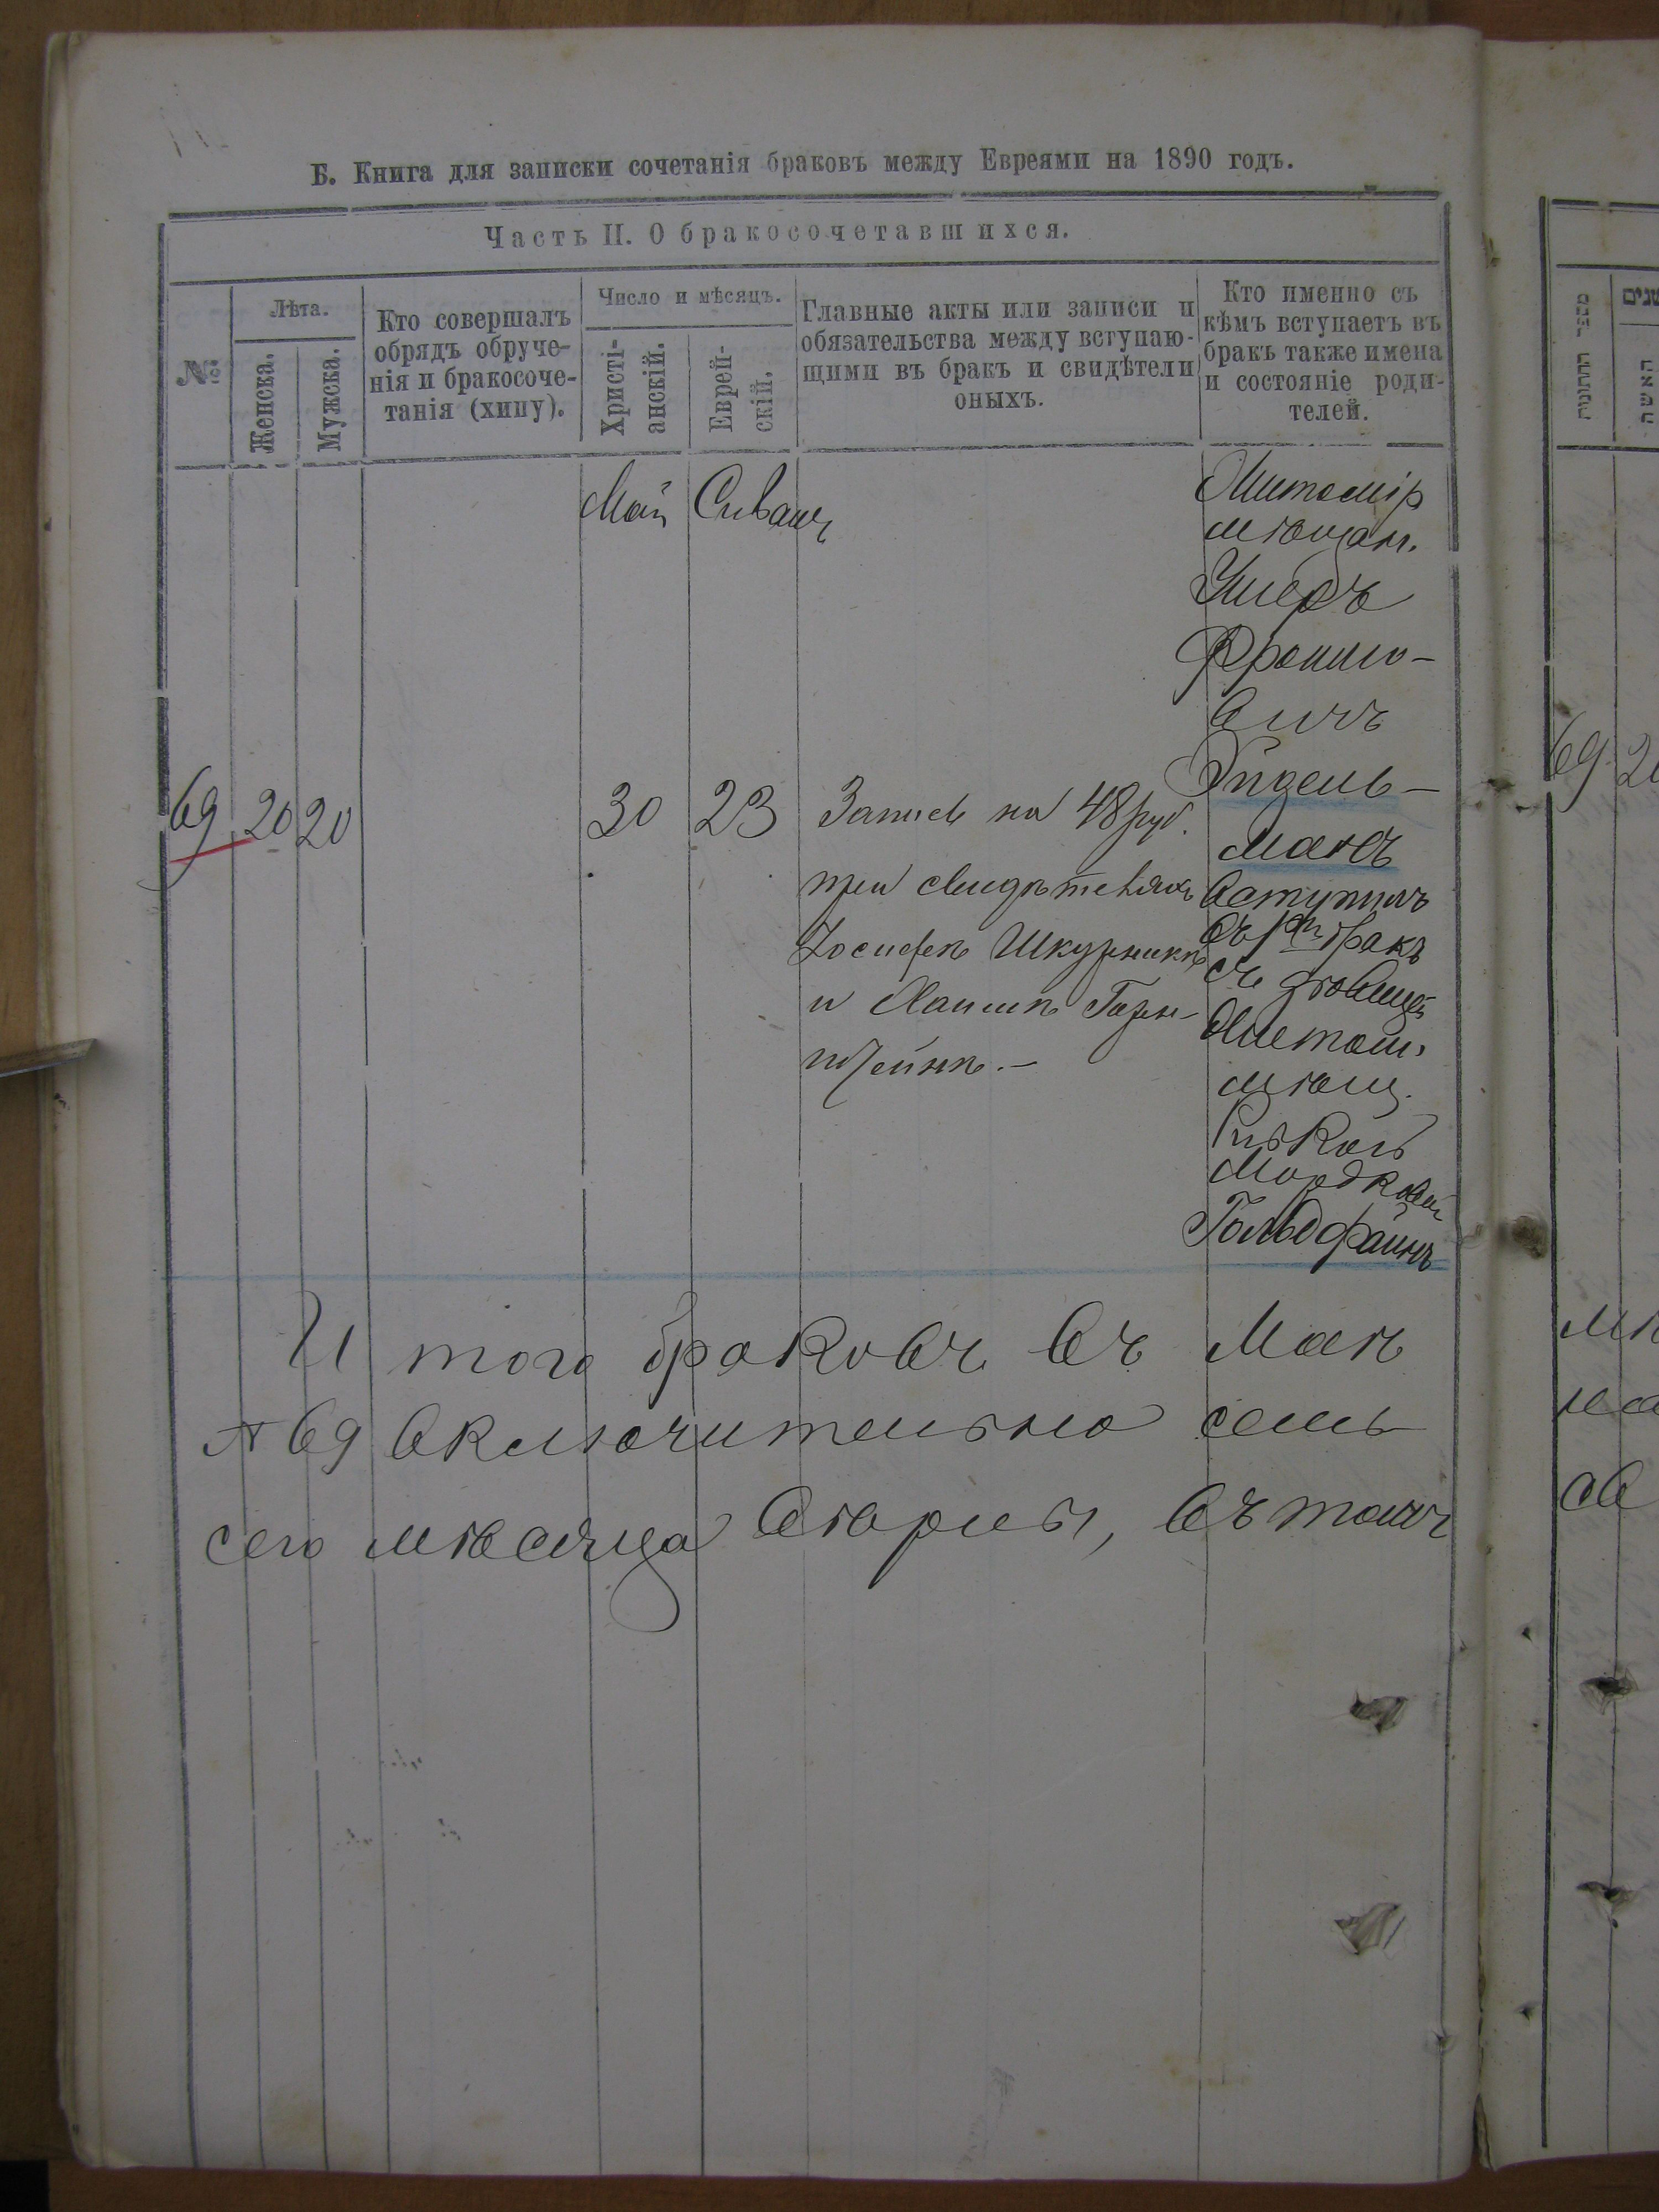 Б. Книга для записки сочетанія браковъ между Евреями на 1890 годъ.
Часть II. О бракосочетавшихся.
№
Лѣта.
Женска.
Мужска.
Кто совершалъ
обрядъ обруче-
нія и бракосоче-
танія (хипу).
Число и мѣсяцъ.
Христі-
анскій.
Еврей-
скій.
Главные акты или записи и
обязательства между вступаю-
щими въ бракъ и свидѣтели
оныхъ.
Кто именно съ
кѣмъ вступаетъ въ
бракъ также имена
и состояніе роди-
телей.
Май
Сиванъ
69
20
20
30
23
Запись на 48 руб.
при свидѣтеляхъ
Іосифѣ Шкурникѣ
и Хаимѣ Горн-
штейнѣ.-
Житомір
мѣщан.
Ушеръ
Фроимо-
вичъ
Эйдель-
манъ
вступилъ
въ 1й бракъ
съ дѣвицей
Житом.
мѣщ.
Рывкой
Мордковой
Гольдфайнъ
И того браковъ въ Маѣ
№ 69 включительно семь
сего мѣсяца вѣрны, въ томъ
מספר החתונות
שנים
האשה
69